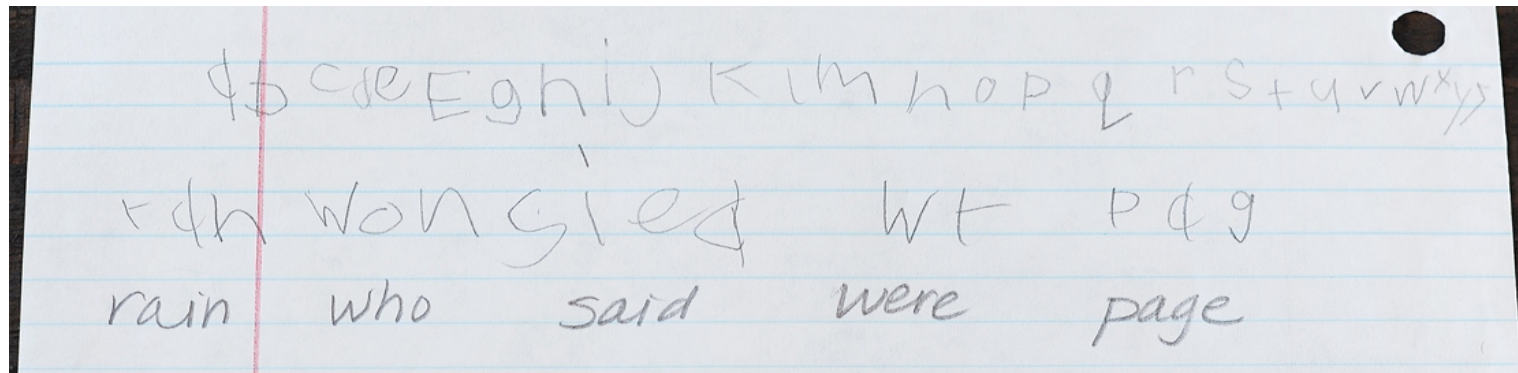 a b c d e E g h i j K l m n o p q r s t u v w x y z
ran won sied wt pag
rain who said were page